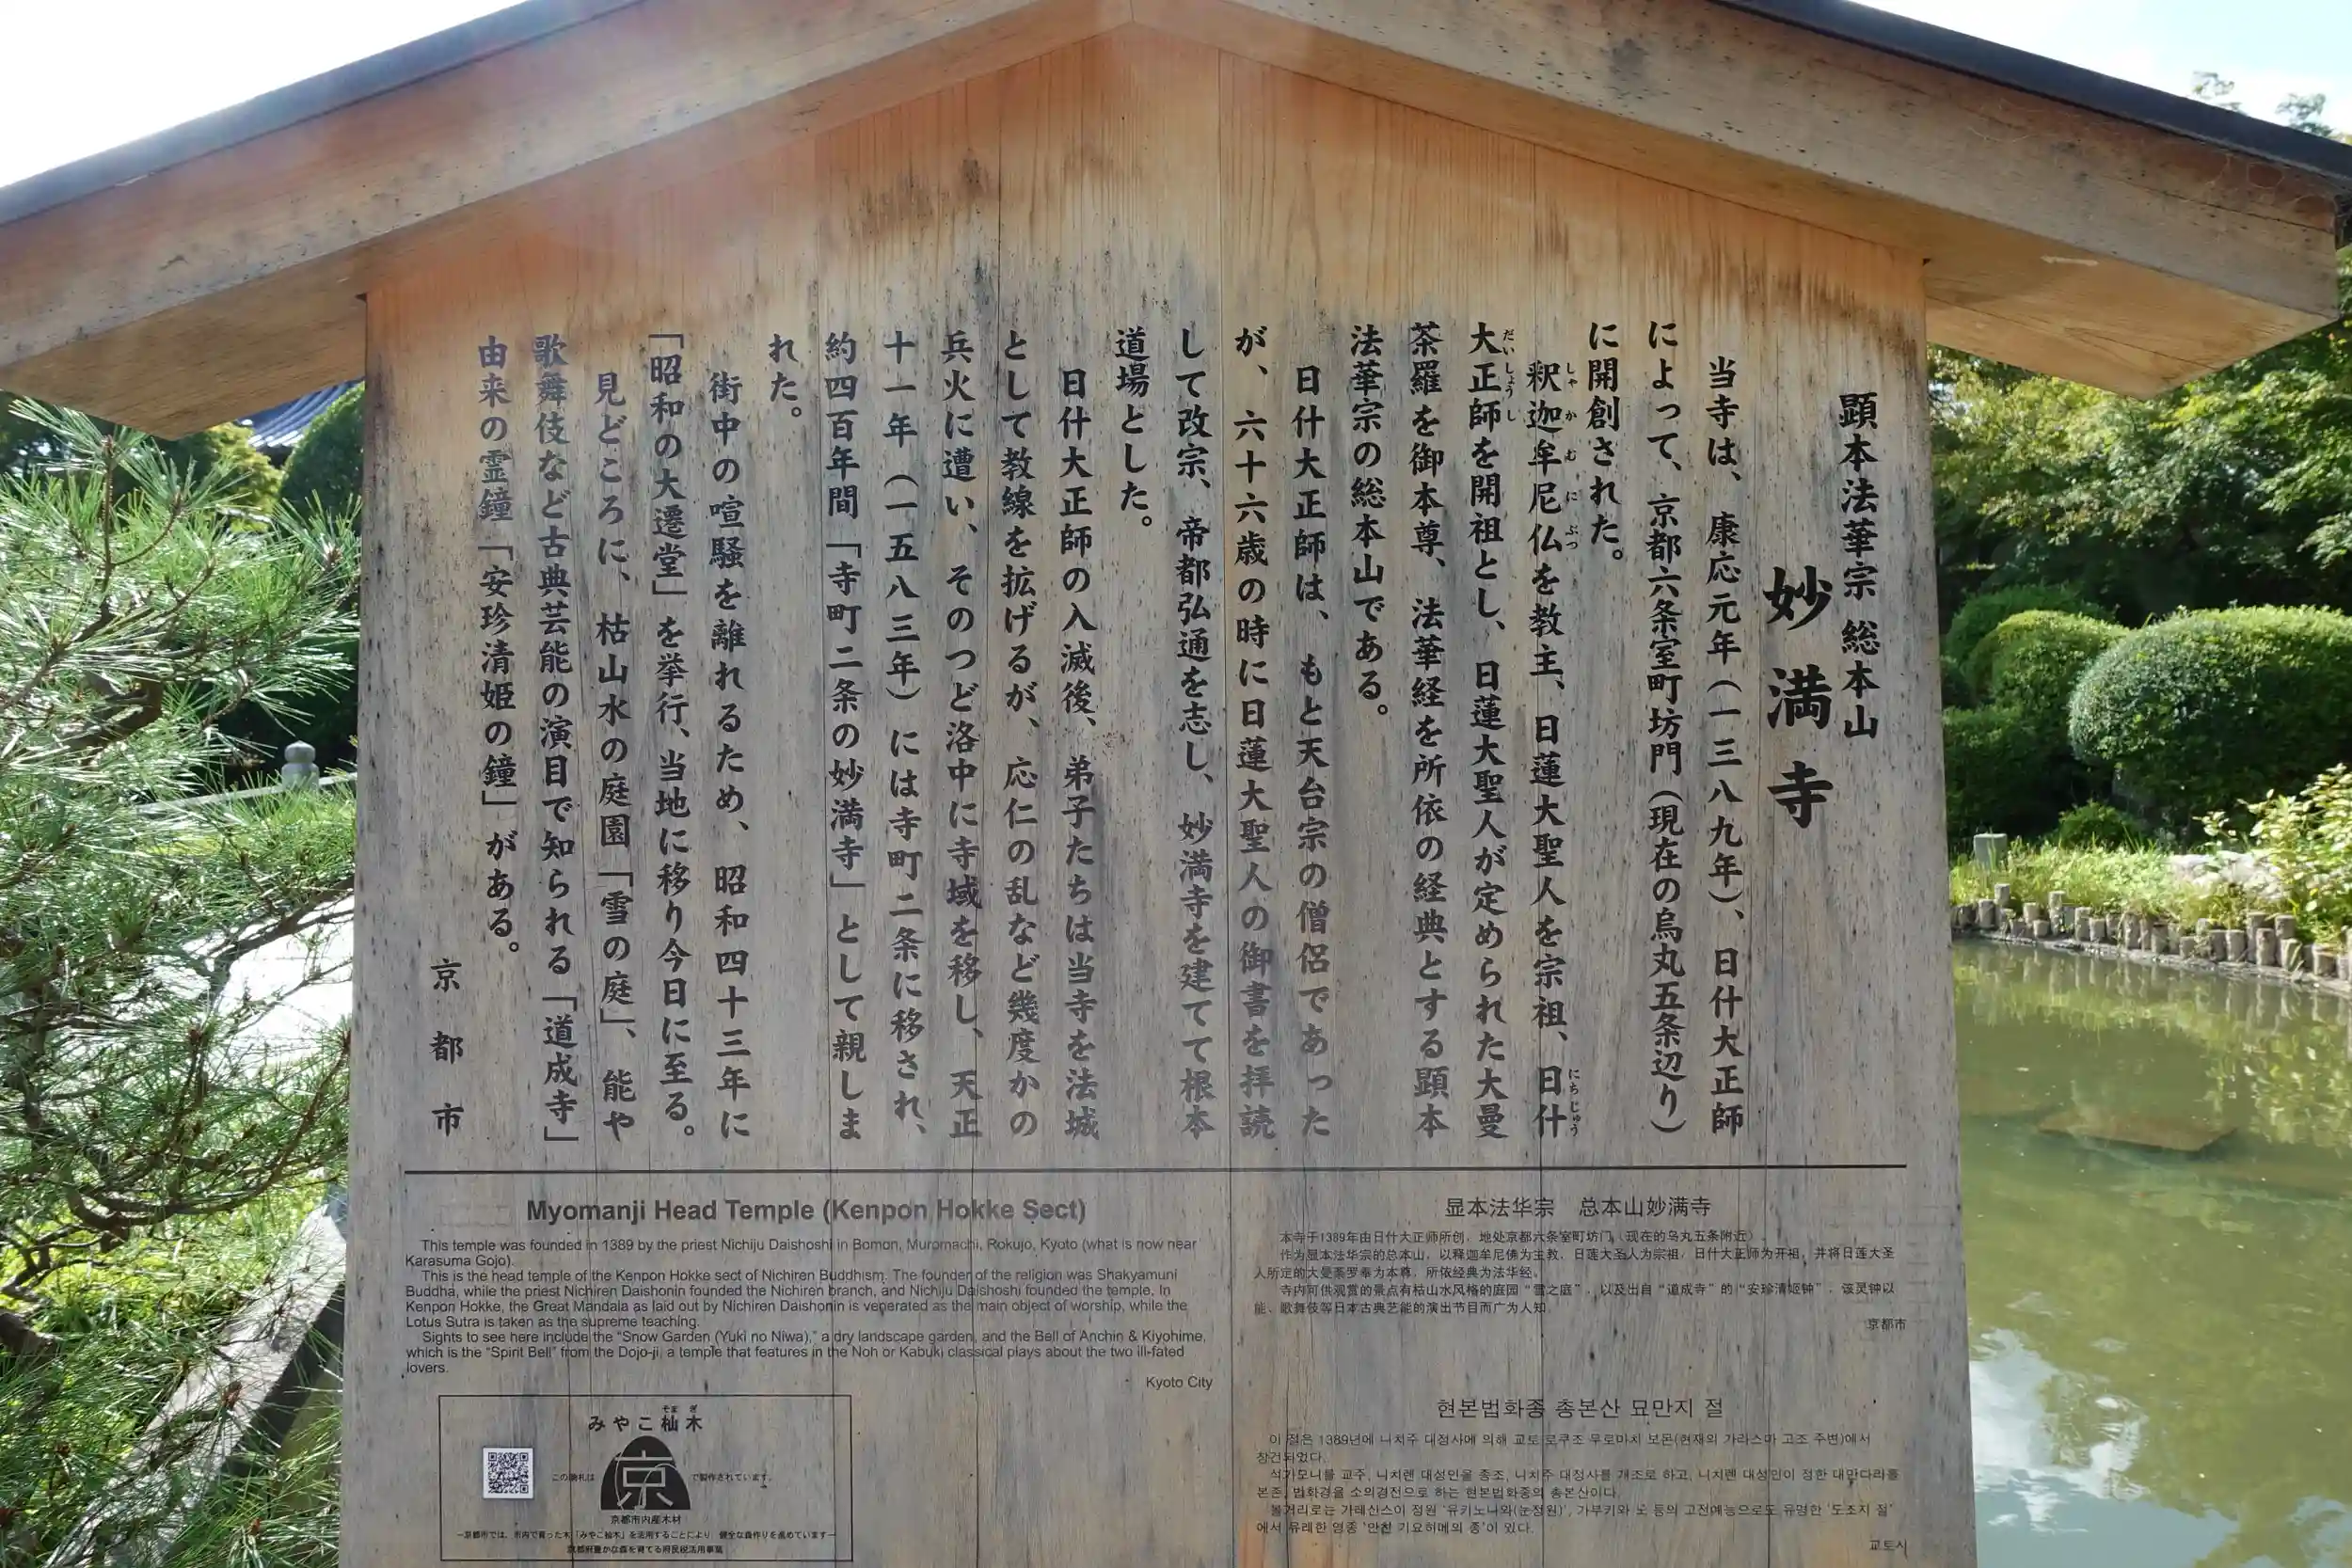 顕本法華宗 総本山
妙満寺
当寺は、康応元年（一三八九年）、日什大正師
によって、京都六条室町坊門（現在の烏丸五条辺り）
に開創された。
釈迦牟尼仏を教主、日蓮大聖人を宗祖、日什
しゃかむにぶつ
にちじゅう
大正師を開祖とし、日蓮大聖人が定められた大曼
だいしょうし
荼羅を御本尊、法華経を所依の経典とする顕本
法華宗の総本山である。
日什大正師は、もと天台宗の僧侶であった
が、六十六歳の時に日蓮大聖人の御書を拝読
して改宗、帝都弘通を志し、妙満寺を建てて根本
道場とした。
日什大正師の入滅後、弟子たちは当寺を法城
として教線を拡げるが、応仁の乱など幾度かの
兵火に遭い、そのつど洛中に寺域を移し、天正
十一年（一五八三年）には寺町二条に移され、
約四百年間「寺町二条の妙満寺」として親しま
れた。
街中の喧騒を離れるため、昭和四十三年に
「昭和の大遷堂」を挙行、当地に移り今日に至る。
見どころに、枯山水の庭園「雪の庭」、能や
歌舞伎など古典芸能の演目で知られる「道成寺」
由来の霊鐘「安珍清姫の鐘」がある。
京都市
Myomanji Head Temple (Kenpon Hokke Sect)
This temple was founded in 1389 by the priest Nichiju Daishoshi in Bomon, Muromachi, Rokujo, Kyoto (what is now near
Karasuma Gojo).
This is the head temple of the Kenpon Hokke sect of Nichiren Buddhism. The founder of the religion was Shakyamuni
Buddha, while the priest Nichiren Daishonin founded the Nichiren branch, and Nichiju Daishoshi founded the temple. In
Kenpon Hokke, the Great Mandala as laid out by Nichiren Daishonin is veperated as the main object of worship, while the
Lotus Sutra is taken as the supreme teaching.
Sights to see here include the "Snow Garden (Yuki no Niwa)," a dry landscape garden, and the Bell of Anchin & Kiyohime,
which is the "Spirit Bell" from the Dojo-ji, a temple that features in the Noh or Kabuki classical plays about the two ill-fated
lovers.
Kyoto City
显本法华宗 总本山妙满寺
本寺于1389年由日什大正师所创，地处京都六条室町坊门（现在的乌丸五条附近）。
作为显本法华宗的总本山，以释迦牟尼佛为主教，日莲大圣人为宗祖，日什大正师为开祖，并将日莲大圣
人所定的大曼荼罗奉为本尊，所依经典为法华经。
寺内可供观赏的景点有枯山水风格的庭园“雪之庭”，以及出自“道成寺”的“安珍清姬钟”，该灵钟以
能、歌舞伎等日本古典艺能的演出节目而广为人知。
京都市
현본법화종 총본산 묘만지 절
이 절은 1389년에 니치주 대정사에 의해 교토 로쿠조 무로마치 보몬(현재의 가라스마 고조 주변)에서
창건되었다.
석가모니를 교주, 니치렌 대성인을 종조, 니치주 대정사를 개조로 하고, 니치렌 대성인이 정한 대만다라를
본존, 법화경을 소의경전으로 하는 현본법화종의 총본산이다.
볼거리로는 가레산스이 정원 '유키노니와(눈정원)', 가부키와 노 등의 고전예능으로도 유명한 '도조지 절'
에서 유래한 영종 '안친 기요히메의 종'이 있다.
교토시
みやこ杣木
そまぎ
この駒札は
京
で製作されています。
京都市内産木材
－京都市では、市内で育った木「みやこ杣木」を活用することにより、健全な森作りを進めています－
京都府豊かな森を育てる府民税活用事業